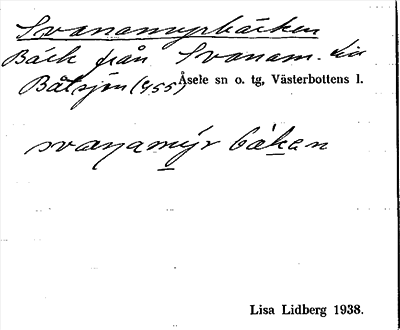 Svanamyrbäcken
Bäck från Svanam. till
Båtsjön (955) Åsele sn o. tg, Västerbottens l.
svanamyr bäken
Lisa Lidberg 1938.